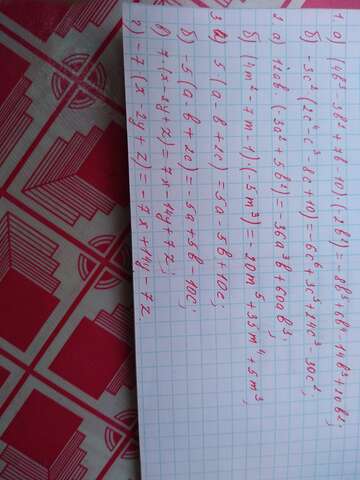 1. а) (4b³-3b²+7b-10)·(-2b²)=-8b⁵+6b⁴-14b³+20b²;
б) -3c²(2c⁴-c³-8c+10)=-6c⁶+3c⁵+24c³-30c²;
2. а) (3a²+5b²)=-36a³b+60ab³;
б) (4m²-7m-1)·(-5m³)=-20m⁵+35m⁴+5m³;
3. а) 5(a-b+2c)=5a-5b+10c;
б) -5(a-b+2c)=-5a+5b-10c;
в) 7·(x-2y+z)=7x-14y+7z;
г) -7(x-2y+z)=-7x+14y-7z.